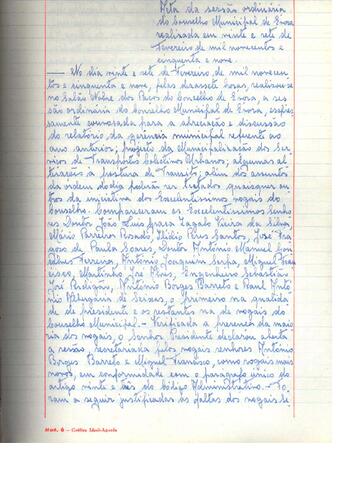 Acta da sessão ordinária
do Concelho Municipal de Évora
realizada em vinte e sete de
Fevereiro de mil novecentos e
cinquenta e nove.
No dia vinte e sete de Fevereiro de mil novecen-
tos e cinquenta e nove, pelas dezassete horas, realizou-se
no Salão Nobre dos Paços do Concelho de Évora, a ses-
são ordinária do Concelho Municipal de Évora, expres-
samente convocada para a apreciação e discussão
do relatório da gerência municipal referente ao
ano anterior; projecto da Municipalização dos Ser-
viços de Transportes Colectivos Urbanos; algumas al-
terações à postura de Transito; além dos assuntos
da ordem do dia poderão ser tratados quaisquer ou-
tros da iniciativa dos Excelentíssimos vogais do
Concelho. Compareceram os Excelentíssimos senho-
res Doutor João Luis Vieira da Silva,
Mário Barreiro Rosado, Ilídio Pires Santos, José Fra-
goso de Paula Soares, Doutor António Manuel
Ferreira, António Joaquim Serpa, Miguel Fran-
cisco, Martinho José Alves, Engenheiro Sebastião
José Perdigão, António Borges Barreto e Raul Antó-
nio Albergaria de Seixas, o primeiro na qualida-
de de presidente e os restantes na de vogais do
Concelho Municipal. - Verificada a presença da maio-
ria dos vogais, o Senhor Presidente declarou aberta
a sessão, secretariada pelos vogais senhores António
Borges Barreto e Miguel Francisco, como vogais mais
novos, em conformidade com o parágrafo único do
artigo vinte e três do Código Administrativo. - Fo-
ram a seguir justificadas as faltas dos vogais Se-
Mod. 6 - Gráfica